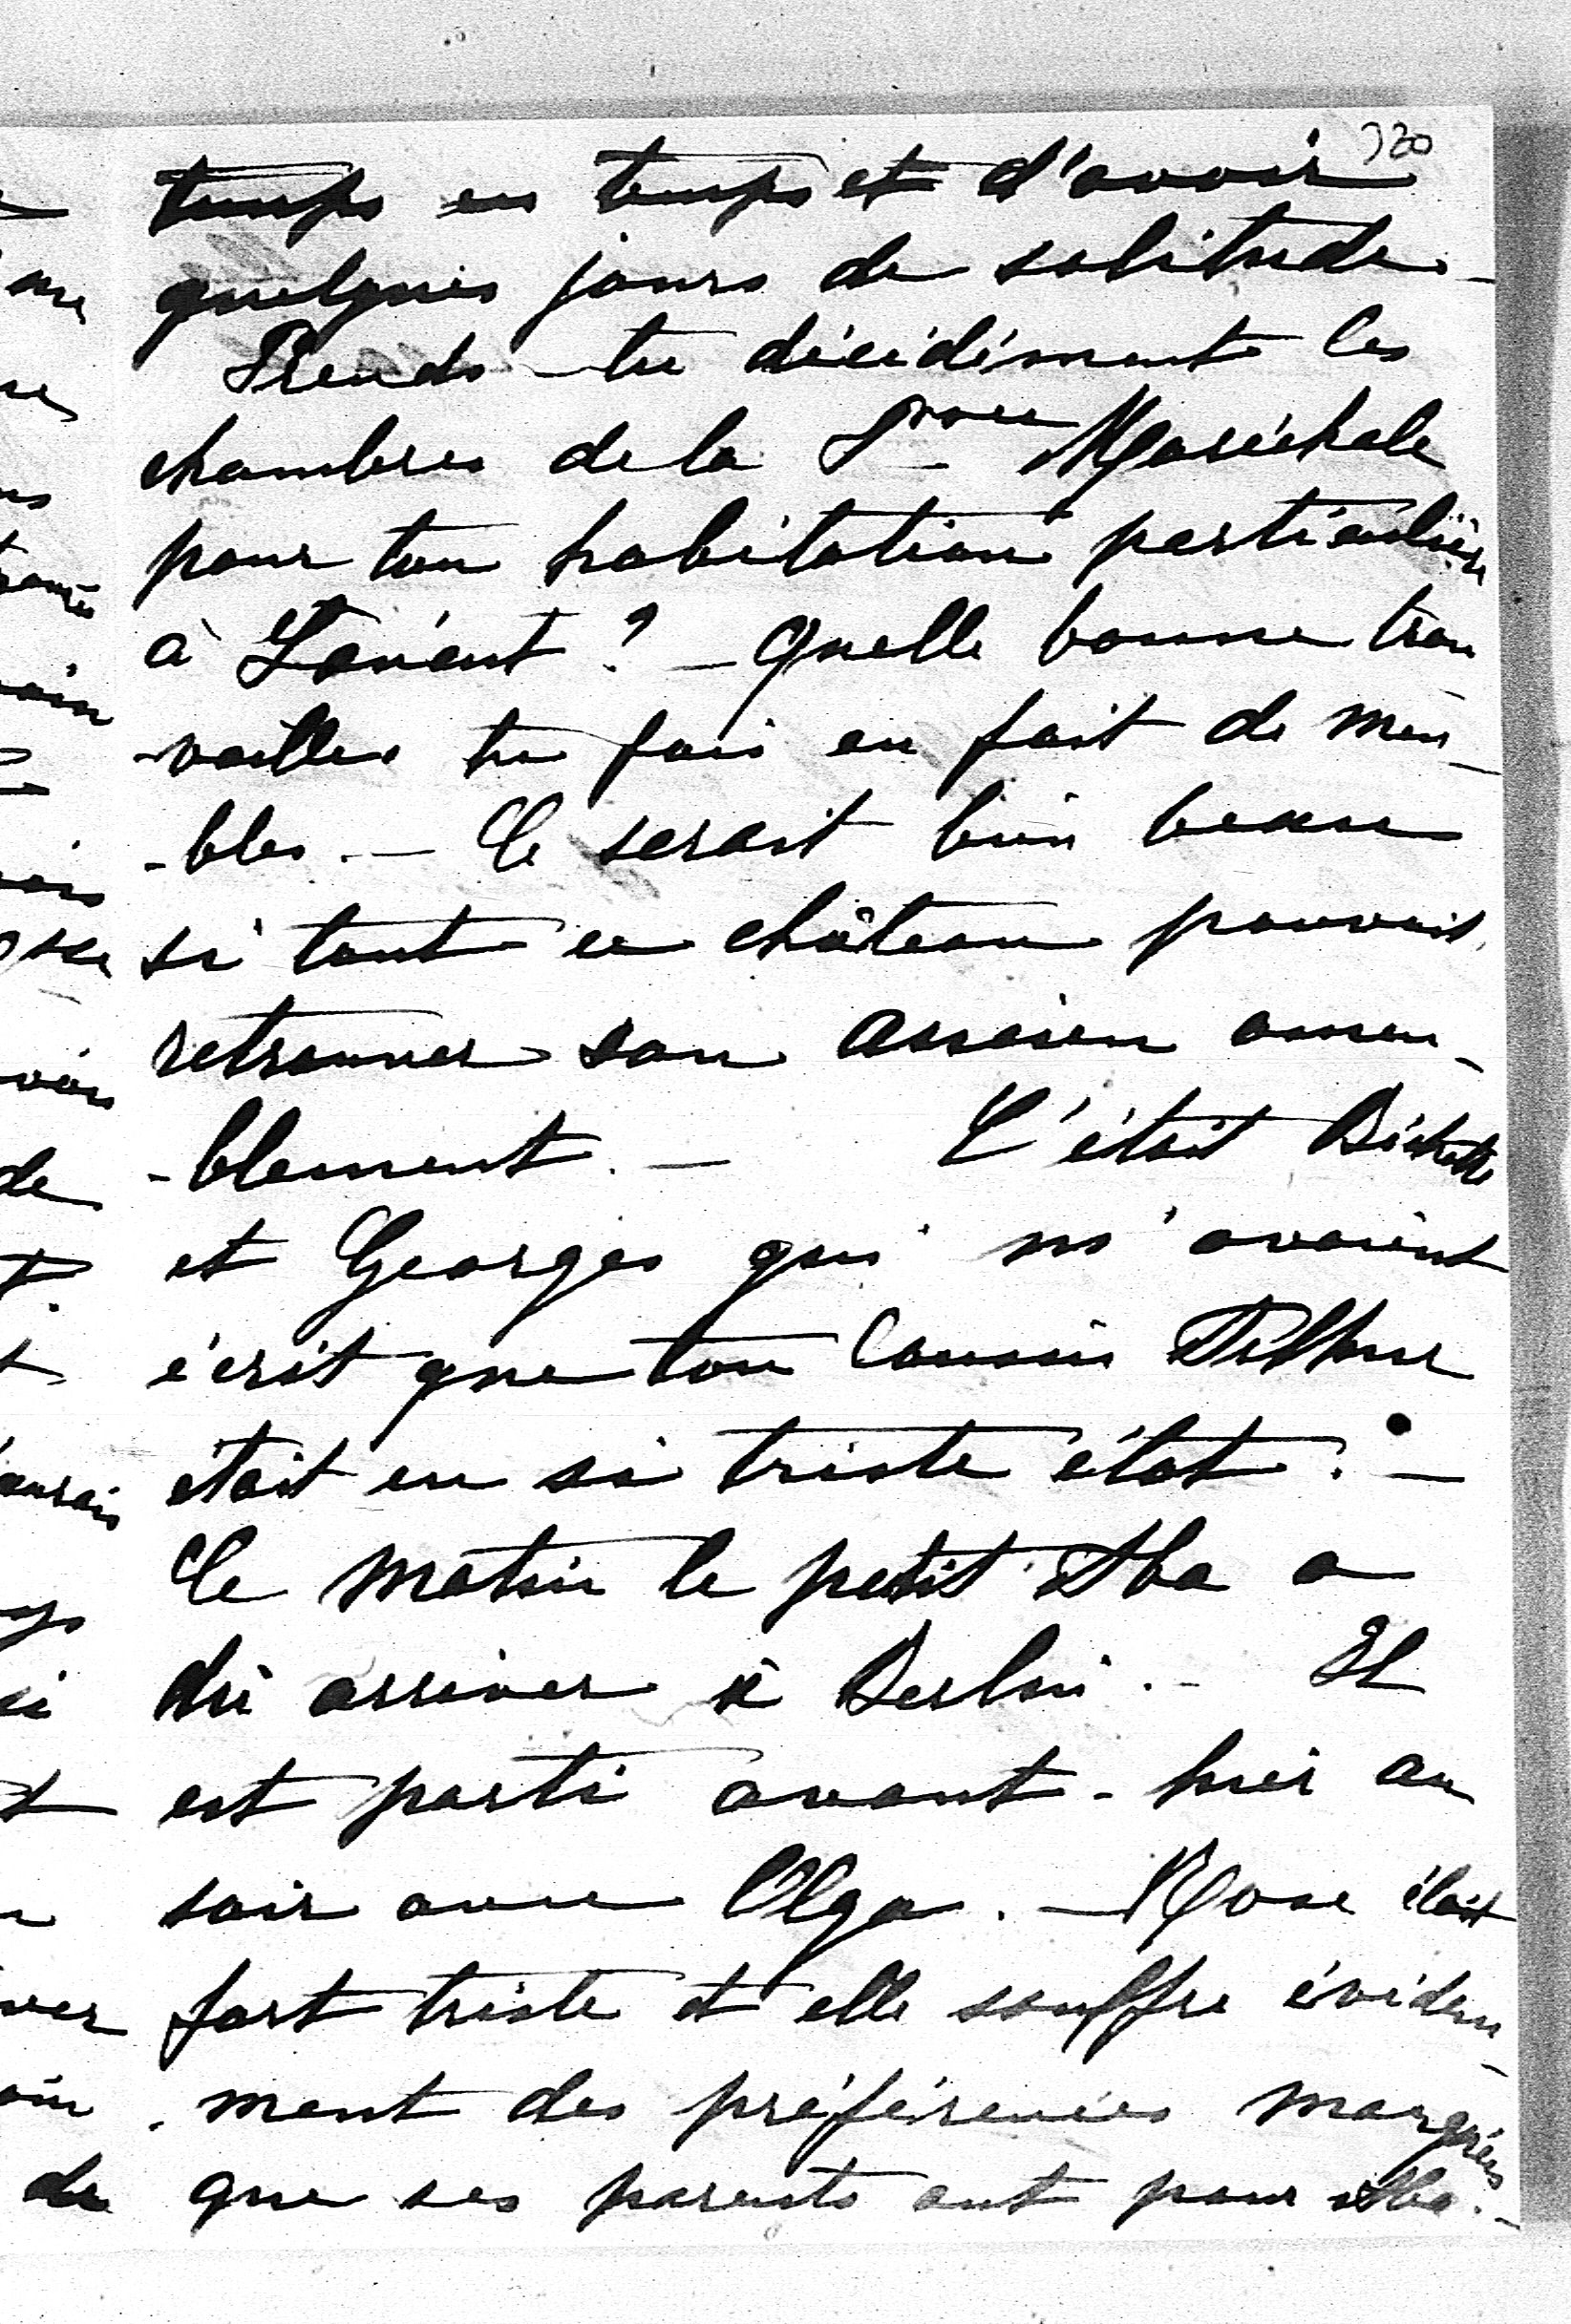 320
temps en temps et d'avoir
quelques jours de solitude. -
Prends-tu décidément les
chambres de la Maréchale
pour ton habitation particulière
à ? - Quelle bonne trou
-vaille tu fais en fait de meu-
-bles. - Ce serait bien beau
si tout ce château pouvait
retrouver son ancien ameu-
-blement. - C'était
et Georges qui m'avaient
écrit que ton Cousin
était en si triste état. -
Ce matin le petit Aba a
dû arriver à Berlin. - Il
est parti avant-hier au
soir avec Olga. - Rose était
fort triste et elle souffre éviden-
-ment des préférences marquées
que ses parents ont pour Aba. -